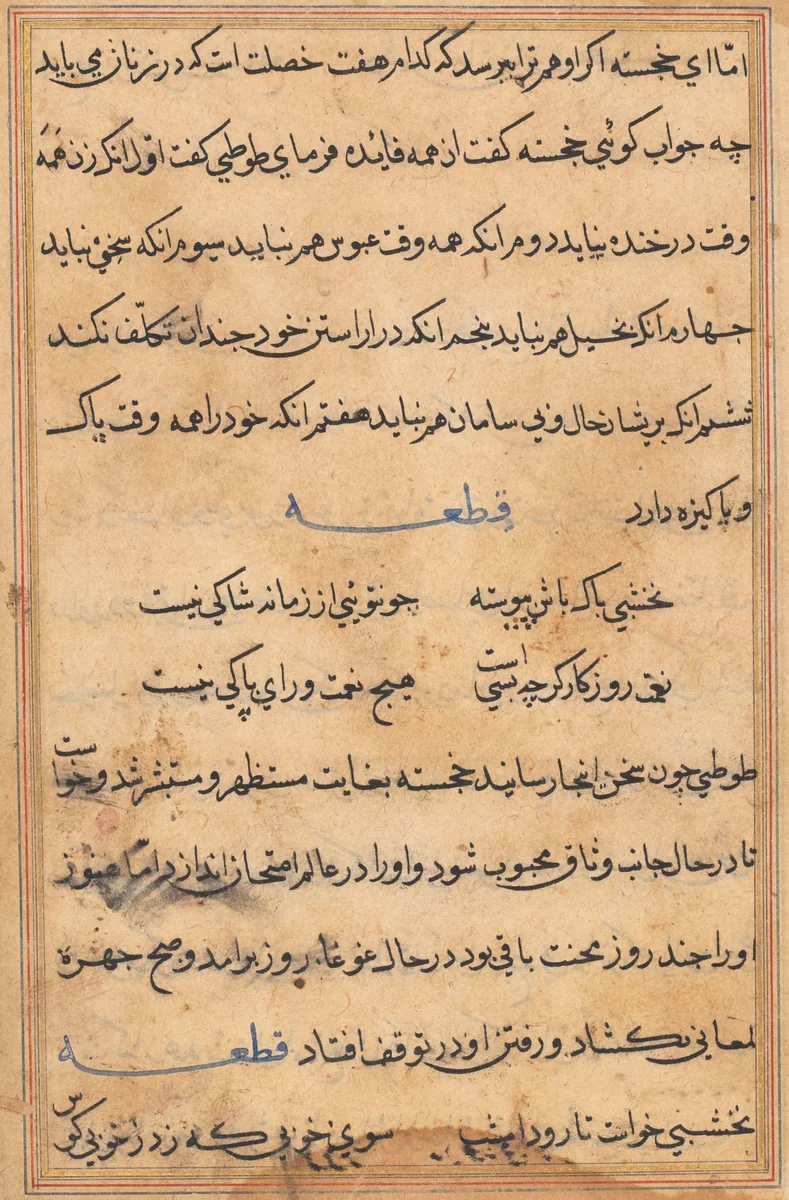 امّا اي خجسته اكر او هم ترا ببرسد كه كدام هفت خصلت است كه در زنان مي بايد
چه جواب كوئي خجسته كفت ازن همه فايده فرماي طوطي كفت اوّل انكه زن همه
وقت در خنده نبايد دوم انكه همه وقت عبوس هم نبايد سيوم انكه سخي نبايد
جهارم انكه بخيل هم نبايد بنجم انكه در اراستن خود جندان تكلّف نكند
ششم انكه بريشان حال و بي سامان هم نبايد هفتم انكه خود را همه وقت پاك
و باكيزه دارد قطعه
نخشبي باك باش پيوسته جون توئي از زمانه شاكي نيست
نعمت روزكار كرچه بسي است هيج نعمت وراي پاكي نيست
طوطي جون سخن اينجا رسانيد خجسته بغايت مستظهر و مستبشر شد و خواست
تا در حال جانب وثاق محبوب شود و او را در عالم امتحان اندازد امّا هنوز
او را جند روز محنت باقي بود در حال غوغاء روز برامد و صبح جهره
لمعاني بكشاد و رفتن او در توقف افتاد قطعه
نخشبي خواست تا رود امشب سوي خوبي كه زد ز خوبي كوس